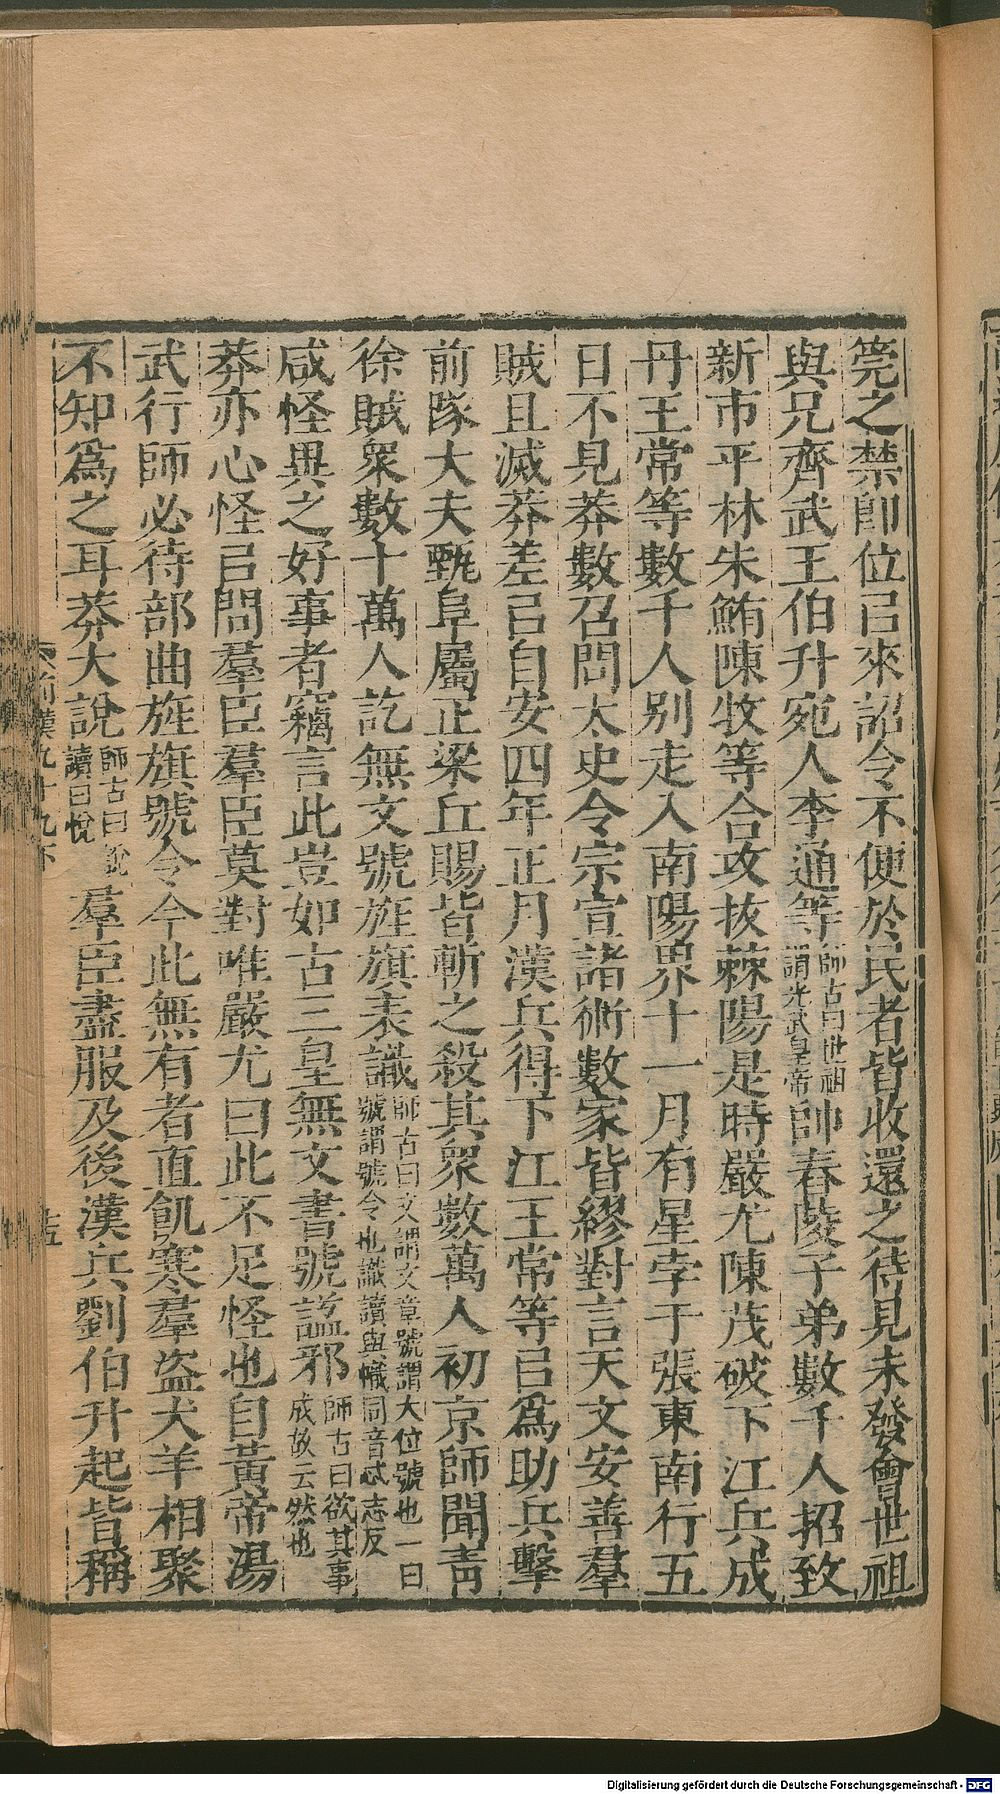 筦之禁即位㠯來詔令不便於民者皆收還之待見未發會世祖
與兄齊武王伯升宛人李通等師古曰世祖謂光武皇帝帥舂陵子弟數千人招致
新市平林朱鮪陳牧等合攻拔棘陽是時嚴尤陳茂破下江兵成
丹王常等數千人別走入南陽界十一月有星孛于張東南行五
日不見莽數召問太史令宗宣諸術數家皆繆對言天文安善羣
賊且滅莽差㠯自安四年正月漢兵得下江王常等㠯爲助兵擊
前隊大夫甄阜屬正梁丘賜皆斬之殺其衆數萬人初京師聞靑
徐賊衆數十萬人訖無文號旌旗表識師古曰文謂文章號謂大位號也一曰號謂號令也識讀與幟同音式志反
咸怪異之好事者竊言此豈如古三皇無文書號謚邪師古曰欲其事成故云然也
莽亦心怪㠯問羣臣羣臣莫對唯嚴尤曰此不足怪也自黃帝湯
武行師必待部曲旌旗號令今此無有者直飢寒羣盜犬羊相聚
不知爲之耳莽大說師古曰說讀曰悅羣臣盡服及後漢兵劉伯升起皆稱
前漢九十九下
十五
Digitalisierung gefördert durch die Deutsche Forschungsgemeinschaft - DFG